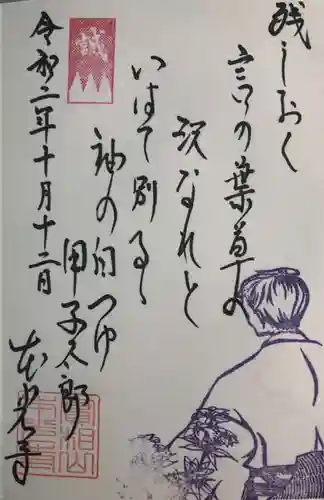 残しおく
言の葉草の
沢なれど
いはで別るゝ
袖の白つゆ
甲子太郎
本光寺
令和二年十月十二日
誠